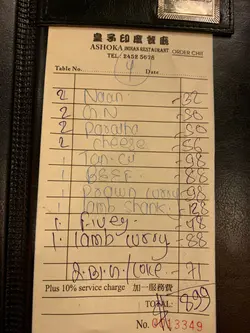 皇子印度餐廳
ASHOKA INDIAN RESTAURANT ORDER CHIT
TEL: 2458 5676
Table No. 4 Date
2 Naan - 32
2 GN - 50
2 Paratha - 50
2 cheese - 56
1 - 98
1 - 88
1 Prawn curry - 98
1 lamb shank - 128
1. - 98
1. lamb curry - 88
- 71
Plus 10% service charge 加一服務費
TOTAL: $ 899
No. 0113349